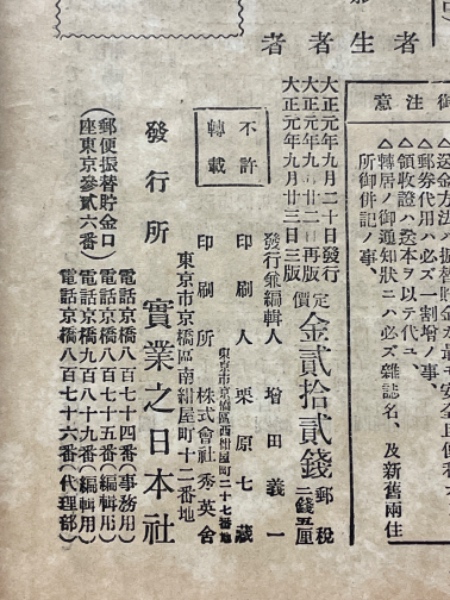 者生者者
御注意
△送金方法ハ振替貯金ガ最モ安全且便利
△郵券代用ハ必ズ一割增ノ事、
△領收證ハ送本ヲ以テ代ユ、
△轉居ノ御通知狀ニハ必ズ雜誌名、及新舊兩住
所御併記ノ事、
大正元年九月二十日發行
大正元年九月廿二日再版
大正元年九月廿三日三版
定價金貳拾貳錢
郵稅
二錢五厘
不許
轉載
發行兼編輯人 增田義一
東京市京橋區西紺屋町二十七番地
印刷人 栗原七藏
印刷所 株式會社秀英舍
東京市京橋區南紺屋町十二番地
發行所 實業之日本社
電話京橋八百七十四番(事務用)
電話京橋八百七十五番(編輯用)
電話京橋九百八十九番(編輯用)
電話京橋八百七十六番(代理部)
(郵便振替貯金口
座東京參貳六番)